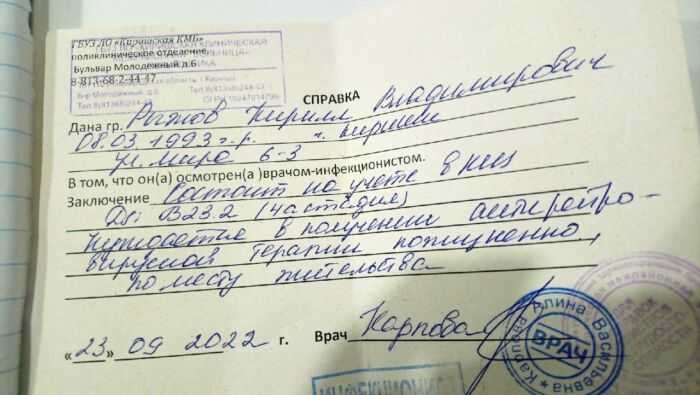 ГБУЗ ЛО «Киришская КМБ»
поликлиническое отделение,
Бульвар Молодежный д.6
8-813-68-2-44-47
СПРАВКА
Дана гр. Кирилл Владимирович
08.03 1993 г.р. г. Кириши
ул. Мира 6-3
В том, что он(а) осмотрен(а )врачом-инфекционистом.
Заключение Состоит на учете в КИЗ
Ds: B23.2 (4а стадия)
Нуждается в получении антиретро-
вирусной терапии пожизненно,
по месту жительства
«23» 09 2022 г. Врач Карпова
Карпова Алина Васильевна
ВРАЧ
ИНФЕКЦИОНИСТ